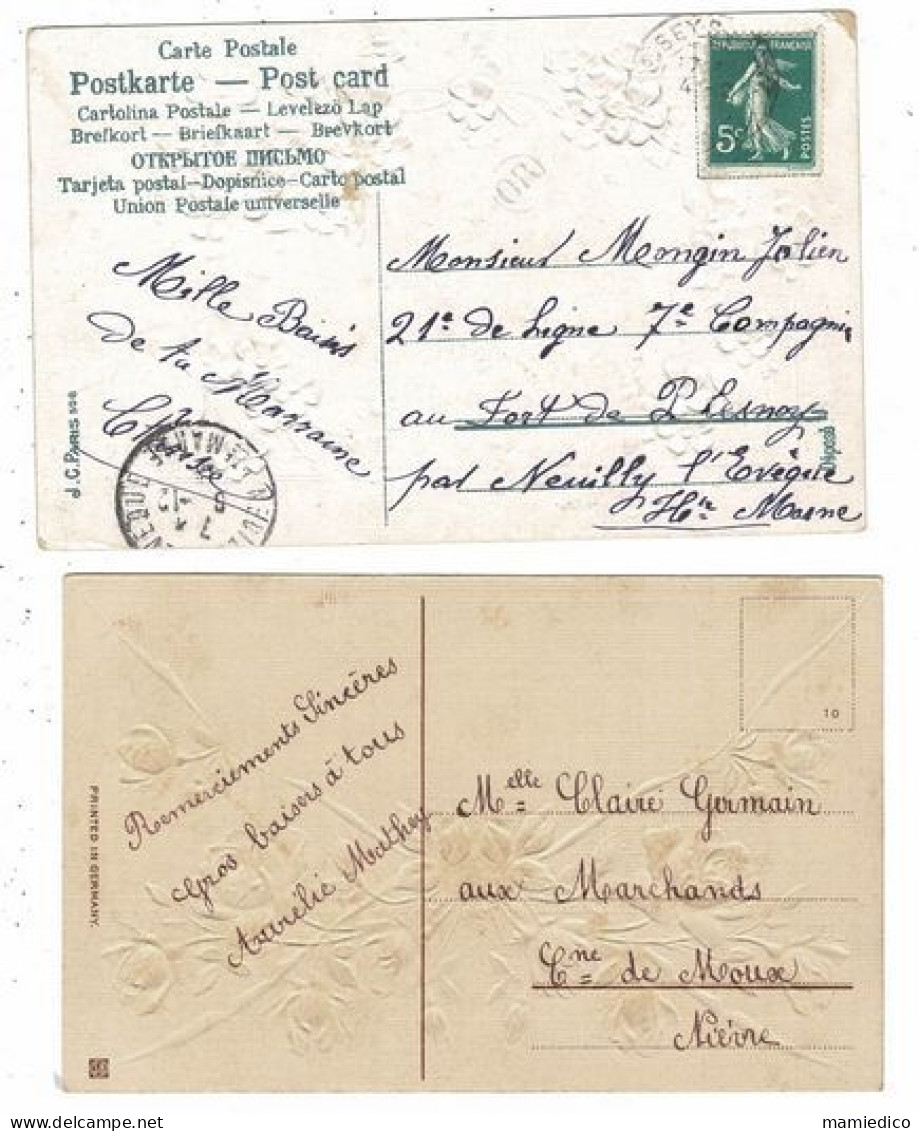 Carte Postale
Postkarte — Post card
Cartolina Postale — Levelezö Lap
Brefkort — Briefkaart — Brevkort
ОТКРЫТОЕ ПИСЬМО
Tarjeta postal—Dopisnice—Carto postal
Union Postale universelle
REPUBLIQUE FRANÇAISE
5c
POSTES
Mille Baisis
de ta Marraine
J.C. PARIS
Monsieur Mongin Jolien
21e de Ligne 7e Compagnie
au Fort de P Lesnoy
par Neuilly l'Evêque
Hte Marne
Déposé
Remerciements Sincères
Gros baisers à tous
Aurélie Mathey
PRINTED IN GERMANY.
10
Melle Claire Germain
aux Marchands
Cne de Moux
Nièvre
mamiedico